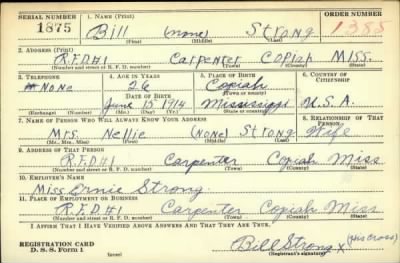 SERIAL NUMBER 1. NAME (Print) ORDER NUMBER
1875 Bill (none) Strong 1385
(First) (Middle) (Last)
2. ADDRESS (Print)
R.F.D#1 Carpenter Copiah Miss.
(Number and street or R. F. D. number) (Town) (County) (State)
3. TELEPHONE 4. AGE IN YEARS 5. PLACE OF BIRTH 6. COUNTRY OF CITIZENSHIP
None 26 Copiah
DATE OF BIRTH (Town or county)
June 15 1914 Mississippi U.S.A.
(Exchange) (No.) (Mo.) (Day) (Yr.) (State or country)
7. NAME OF PERSON WHO WILL ALWAYS KNOW YOUR ADDRESS 8. RELATIONSHIP OF THAT PERSON
Mrs. Nellie (None) Strong Wife
(Mr., Mrs., Miss) (First) (Middle) (Last)
9. ADDRESS OF THAT PERSON
R.F.D#1 Carpenter Copiah Miss
(Number and street or R. F. D. number) (Town) (County) (State)
10. EMPLOYER'S NAME
Miss Ernie Strong.
11. PLACE OF EMPLOYMENT OR BUSINESS
R.F.D#1 Carpenter Copiah Miss
(Number and street or R. F. D. number) (Town) (County) (State)
I AFFIRM THAT I HAVE VERIFIED ABOVE ANSWERS AND THAT THEY ARE TRUE.
REGISTRATION CARD
D. S. S. FORM 1 (over) Bill Strong X (His Cross)
(Registrant's signature)